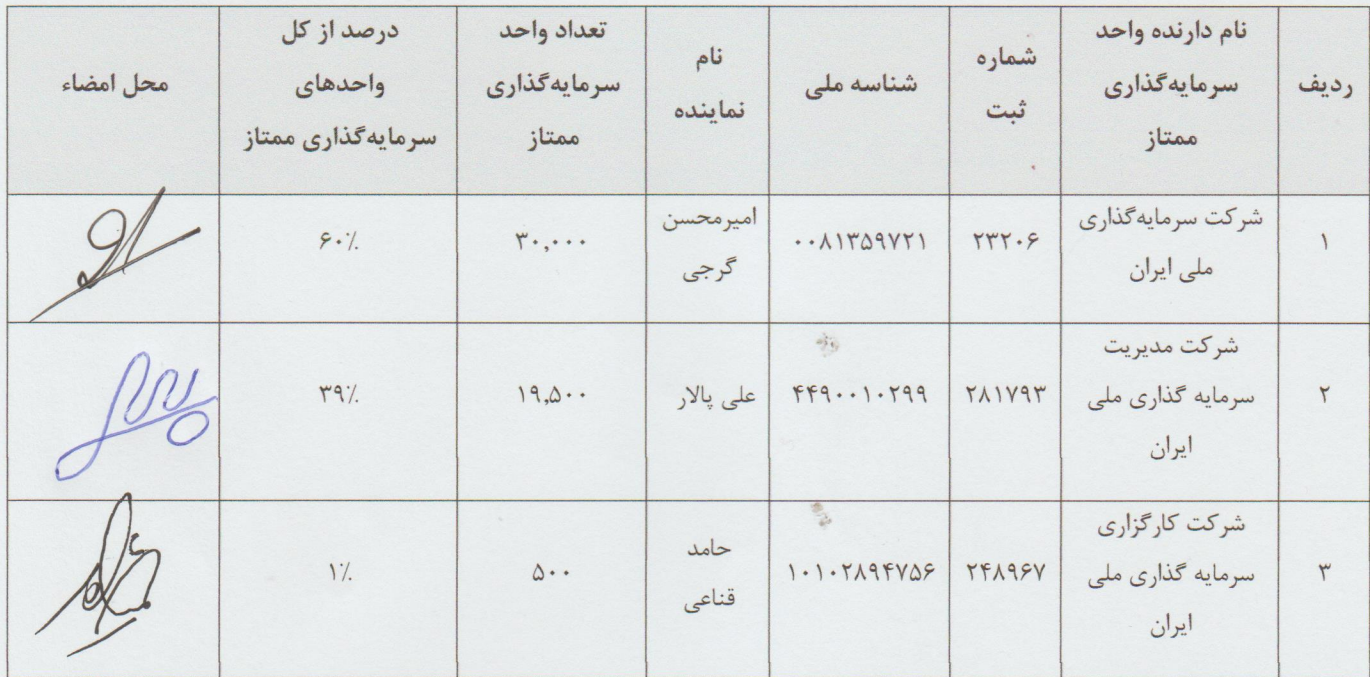 ردیف
نام دارنده واحد
سرمایه‌گذاری
ممتاز
شماره
ثبت
شناسه ملی
نام
نماینده
تعداد واحد
سرمایه‌گذاری
ممتاز
درصد از کل
واحدهای
سرمایه‌گذاری ممتاز
محل امضاء
۱
شرکت سرمایه‌گذاری
ملی ایران
۲۳۲۰۶
۰۰۸۱۳۵۹۷۲۱
امیرمحسن
گرجی
۳۰,۰۰۰
۶۰٪
۲
شرکت مدیریت
سرمایه گذاری ملی
ایران
۲۸۱۷۹۳
۴۴۹۰۰۱۰۲۹۹
علی پالار
۱۹,۵۰۰
۳۹٪
۳
شرکت کارگزاری
سرمایه گذاری ملی
ایران
۲۴۸۹۶۷
۱۰۱۰۲۸۹۴۷۵۶
حامد
قناعی
۵۰۰
۱٪